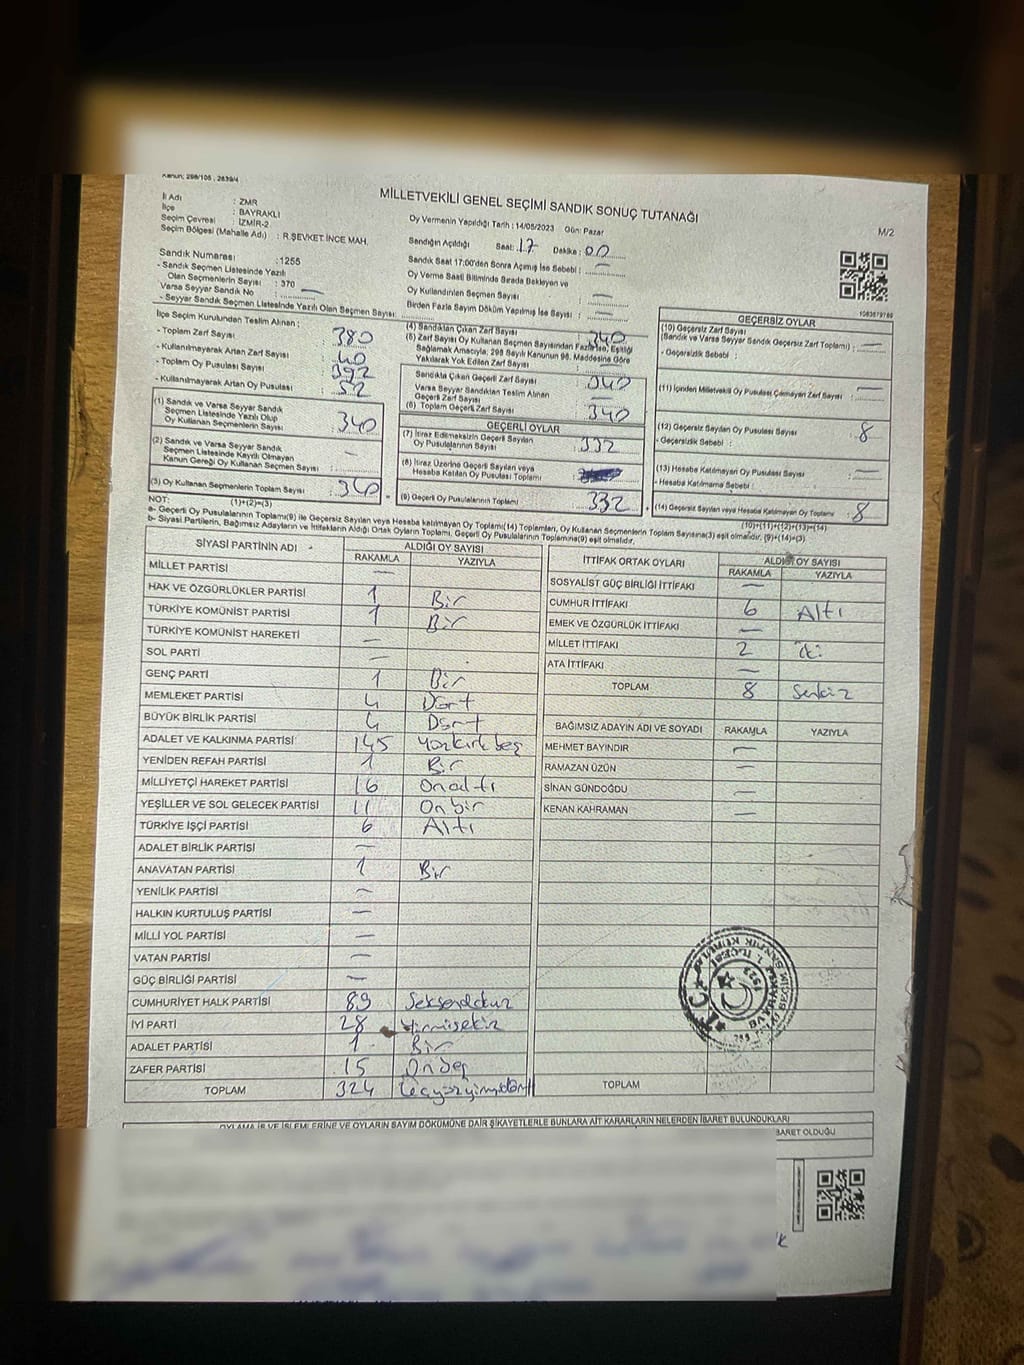 Kanun; 298/105 , 2839/4
MİLLETVEKİLİ GENEL SEÇİMİ SANDIK SONUÇ TUTANAĞI
M/2
İl Adı : ZMR
İlçe : BAYRAKLI
Seçim Çevresi : İZMİR-2
Seçim Bölgesi (Mahalle Adı) : R.ŞEVKET İNCE MAH.
Oy Vermenin Yapıldığı Tarih : 14/05/2023 Gün: Pazar
Sandığın Açıldığı Saat: 17 Dakika : 00
Sandık Saat 17:00'den Sonra Açılmış İse Sebebi : —
Oy Verme Saati Bitiminde Sırada Bekleyen ve
Oy Kullandırılan Seçmen Sayısı : —
Birden Fazla Sayım Döküm Yapılmış İse Sayısı : —
Sandık Numarası : 1255
- Sandık Seçmen Listesinde Yazılı
Olan Seçmenlerin Sayısı : 370
Varsa Seyyar Sandık No : —
- Seyyar Sandık Seçmen Listesinde Yazılı Olan Seçmen Sayısı:
İlçe Seçim Kurulundan Teslim Alınan :
- Toplam Zarf Sayısı 380
- Kullanılmayarak Artan Zarf Sayısı 40
- Toplam Oy Pusulası Sayısı 392
- Kullanılmayarak Artan Oy Pusulası 52
(1) Sandık ve Varsa Seyyar Sandık
Seçmen Listesinde Yazılı Olup
Oy Kullanan Seçmenlerin Sayısı : 340
(2) Sandık ve Varsa Seyyar Sandık
Seçmen Listesinde Kayıtlı Olmayan
Kanun Gereği Oy Kullanan Seçmen Sayısı : —
(3) Oy Kullanan Seçmenlerin Toplam Sayısı : 340
(1)+(2)=(3)
(4) Sandıktan Çıkan Zarf Sayısı 340
(5) Zarf Sayısı Oy Kullanan Seçmen Sayısından Fazla İse, Eşitliği
Sağlamak Amacıyla; 298 Sayılı Kanunun 98. Maddesine Göre
Yakılarak Yok Edilen Zarf Sayısı : —
Sandıkta Çıkan Geçerli Zarf Sayısı : 340
Varsa Seyyar Sandıktan Teslim Alınan
Geçerli Zarf Sayısı : —
(6) Toplam Geçerli Zarf Sayısı : 340
GEÇERLİ OYLAR
(7) İtiraz Edilmeksizin Geçerli Sayılan
Oy Pusulalarının Sayısı : 332
(8) İtiraz Üzerine Geçerli Sayılan veya
Hesaba Katılan Oy Pusulası Toplamı :
(9) Geçerli Oy Pusulalarının Toplamı : 332
1083879788
GEÇERSİZ OYLAR
(10) Geçersiz Zarf Sayısı
(Sandık ve Varsa Seyyar Sandık Geçersiz Zarf Toplamı) : —
- Geçersizlik Sebebi :
(11) İçinden Milletvekili Oy Pusulası Çıkmayan Zarf Sayısı : —
(12) Geçersiz Sayılan Oy Pusulası Sayısı : 8
- Geçersizlik Sebebi :
(13) Hesaba Katılmayan Oy Pusulası Sayısı : —
- Hesaba Katılmama Sebebi :
(14) Geçersiz Sayılan veya Hesaba Katılmayan Oy Toplamı : 8
(10)+(11)+(12)+(13)=(14)
NOT:
a- Geçerli Oy Pusulalarının Toplamı(9) ile Geçersiz Sayılan veya Hesaba katılmayan Oy Toplamı(14) Toplamları, Oy Kullanan Seçmenlerin Toplam Sayısına(3) eşit olmalıdır. (9)+(14)=(3)
b- Siyasi Partilerin, Bağımsız Adayların ve İttifakların Aldığı Oyların Toplamı, Geçerli Oy Pusulalarının Toplamına(9) eşit olmalıdır.
SİYASİ PARTİNİN ADI ALDIĞI OY SAYISI
RAKAMLA YAZIYLA
MİLLET PARTİSİ —
HAK VE ÖZGÜRLÜKLER PARTİSİ 1 Bir
TÜRKİYE KOMÜNİST PARTİSİ 1 Bir
TÜRKİYE KOMÜNİST HAREKETİ —
SOL PARTİ —
GENÇ PARTİ 1 Bir
MEMLEKET PARTİSİ 4 Dört
BÜYÜK BİRLİK PARTİSİ 4 Dört
ADALET VE KALKINMA PARTİSİ 145 Yüzkırkbeş
YENİDEN REFAH PARTİSİ 1 Bir
MİLLİYETÇİ HAREKET PARTİSİ 16 Onaltı
YEŞİLLER VE SOL GELECEK PARTİSİ 11 Onbir
TÜRKİYE İŞÇİ PARTİSİ 6 Altı
ADALET BİRLİK PARTİSİ —
ANAVATAN PARTİSİ 1 Bir
YENİLİK PARTİSİ —
HALKIN KURTULUŞ PARTİSİ —
MİLLİ YOL PARTİSİ —
VATAN PARTİSİ —
GÜÇ BİRLİĞİ PARTİSİ —
CUMHURİYET HALK PARTİSİ 89 Seksendokuz
İYİ PARTİ 28 Yirmisekiz
ADALET PARTİSİ 1 Bir
ZAFER PARTİSİ 15 Onbeş
TOPLAM 324 Üçyüzyirmidört
İTTİFAK ORTAK OYLARI ALDIĞI OY SAYISI
RAKAMLA YAZIYLA
SOSYALİST GÜÇ BİRLİĞİ İTTİFAKI —
CUMHUR İTTİFAKI 6 Altı
EMEK VE ÖZGÜRLÜK İTTİFAKI —
MİLLET İTTİFAKI 2 İki
ATA İTTİFAKI —
TOPLAM 8 Sekiz
BAĞIMSIZ ADAYIN ADI VE SOYADI RAKAMLA YAZIYLA
MEHMET BAYINDIR —
RAMAZAN ÜZÜN —
SİNAN GÜNDOĞDU —
KENAN KAHRAMAN —
T.C.
TOPLAM
OYLAMA İŞ VE İŞLEMLERİNE VE OYLARIN SAYIM DÖKÜMÜNE DAİR ŞİKAYETLERLE BUNLARA AİT KARARLARIN NELERDEN İBARET BULUNDUKLARI
BARET OLDUĞU